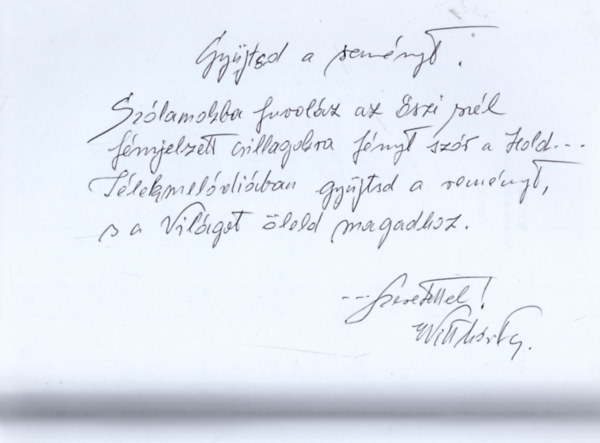 Gyűjtsd a reményt.
Szólamokba fuvoláz az őszi szél
fémjelzett csillagokra fényt szór a Hold...
Lélekmelódiában gyűjtsd a reményt,
s a Világot öleld magadhoz.
...Szeretettel!